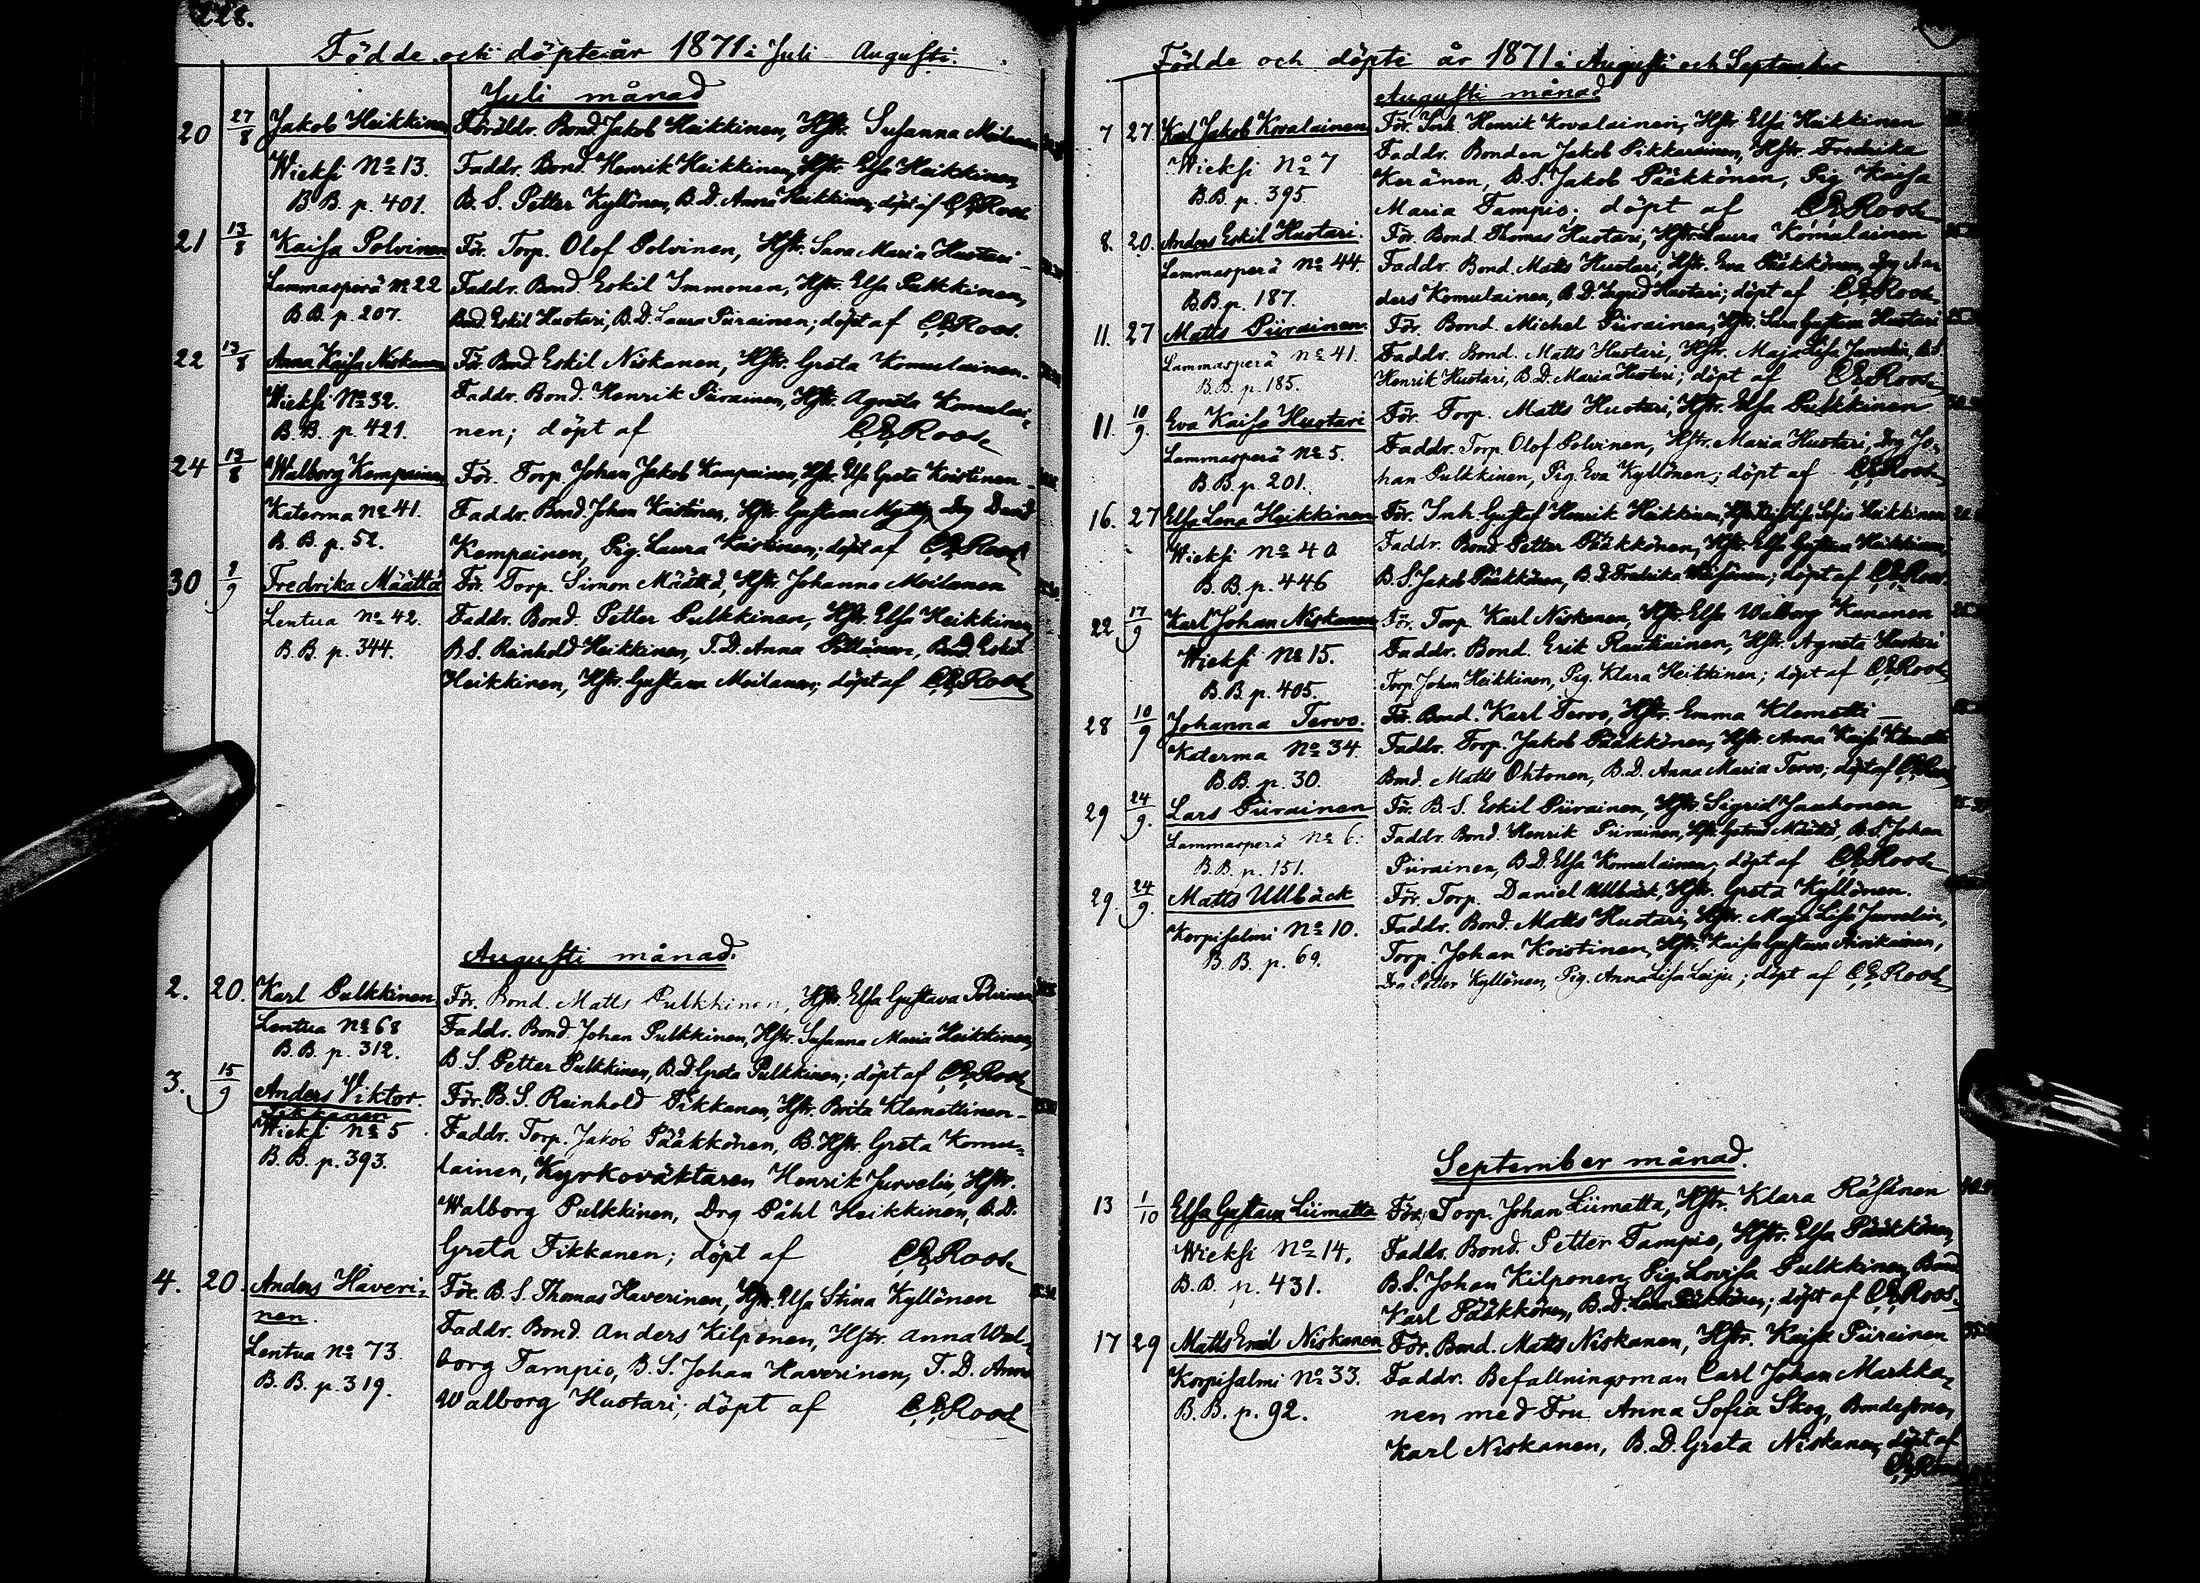 228.
Födde och döpte år 1871 i Juli Augusti.
Juli månad
20 27/8 Jakob Heikkinen Föräldr. Bond. Jakob Heikkinen, Hstr. Susanna Moilanen
Wieksi No 13. Faddr. Bond. Henrik Heikkinen, Hstr. Elsa Heikkinen,
B.B. p. 401. B.S. Petter Kyllönen, B.D. Anna Heikkinen; döpt af C.E. Roos
21 13/8 Kaisa Polvinen För. Torp. Olof Polvinen, Hstr. Sara Maria Huotari
Lammasperä No 22 Faddr. Bond Eskil Immonen, Hstr. Elsa Pulkkinen,
B.B. p. 207. Bond. Eskil Huotari, B.D. Laura Piirainen; döpt af C.E. Roos.
22 13/8 Anna Kaisa Niskanen För. Bond. Eskil Niskanen, Hstr. Greta Komulainen
Wieksi No 32. Faddr. Bond. Henrik Piirainen, Hstr. Agneta Komulai-
B.B. p. 421. nen; döpt af C.E. Roos
24 13/8 Walborg Kempainen För. Torp. Johan Jakob Kempainen, Hstr. Elsa Greta Koistinen
Katerma No 41. Faddr. Bond. Johan Koistinen, Hstr. Gustava Drg David
B.B. p. 52. Kempainen, Pig. Laura Koistinen; döpt af C.E. Roos
30 9 Fredrika Määttä För. Torp. Simon Määttä, Hstr. Johanna Moilanen
Lentua No 42. Faddr. Bond. Petter Pulkkinen, Hstr. Elsa Heikkinen,
B.B. p. 344. B.S. Reinhold Heikkinen, T.D. Anna Bond Eskil
Heikkinen, Hstr. Gustava Moilanen; döpt af C.E. Roos
Augusti månad.
2. 20. Karl Pulkkinen För. Bond. Matts Pulkkinen, Hstr. Elsa Gustava Polvinen
Lentua No 68 Faddr. Bond. Johan Pulkkinen, Hstr. Susanna Maria Heikkinen,
B.B. p. 312. B.S. Petter Pulkkinen, B.D. Greta Pulkkinen; döpt af C.E. Roos
3. 15/9 Anders Viktor För. B.S. Reinhold Tikkanen, Hstr. Brita Klemettinen
Tikkanen
Wieksi No 5 Faddr. Torp. Jakob Pääkkönen, B. Hstr. Greta Komu-
B.B. p. 393. lainen, Kyrkoväktaren Henrik Jurvelin, Hstr.
Walborg Pulkkinen, Drg Påhl Heikkinen, B.D.
Greta Tikkanen; döpt af C.E. Roos
4. 20. Anders Haveri- För. B.S. Thomas Haverinen, Hstr. Elsa Stina Kyllönen
nen. Faddr. Bond. Anders Kilponen, Hstr. Anna Wal-
Lentua No 73. borg Tampio, B.S. Johan Haverinen, T.D. Anna
B.B. p. 319. Walborg Huotari; döpt af C.E. Roos
Födde och döpte år 1871 i Augusti och September
Augusti månad
7 27 Karl Jakob Kovalainen För. Inh. Henrik Kovalainen, Hstr. Elsa Heikkinen
Wieksi No 7 Faddr. Bonden Jakob Pikkarainen, Hstr. Fredrika
B.B. p. 395. Keränen, B.S. Jakob Pääkkönen, Pig. Kaisa
Maria Tampio; döpt af C.E. Roos
8. 20. Anders Eskil Huotari. För. Bond. Thomas Huotari, Hstr. Laura Komulainen
Lammasperä No 44. Faddr. Bond. Matts Huotari, Hstr. Eva Pääkkönen, Drg An-
B.B. p. 187. ders Komulainen, B.D. Ingrid Huotari; döpt af C.E. Roos
11. 27 Matts Piirainen. För. Bond. Michel Piirainen, Hstr. Sara Gustava Huotari
Lammasperä No 41. Faddr. Bond. Matts Huotari, Hstr. Maja Lisa Jurvelin, B.S.
B.B. p. 185. Henrik Huotari, B.D. Maria Huotari; döpt af C.E. Roos
11. 10/9. Eva Kaisa Huotari För. Torp. Matts Huotari, Hstr. Elsa Pulkkinen
Lammasperä No 5. Faddr. Torp. Olof Polvinen, Hstr. Maria Huotari, Drg Jo-
B.B. p. 201. han Pulkkinen, Pig. Eva Kyllönen; döpt af C.E. Roos
16. 27 Elsa Lena Heikkinen För. Inh. Gustaf Henrik Heikkinen, Sofia Heikkinen
Wieksi No 40 Faddr. Bond. Petter Pääkkönen, Hstr. Elsa Gustava Heikkinen,
B.B. p. 446 B.S. Jakob Pääkkönen, B.D. Fredrika Väisänen; döpt af C.E. Roos.
22 17/9 Karl Johan Niskanen För. Torp. Karl Niskanen, Hstr. Elsa Walborg Kananen
Wieksi No 15. Faddr. Bond. Erik Rautiainen, Hstr. Agneta Huotari
B.B. p. 405. Torp. Johan Heikkinen, Pig. Klara Heikkinen; döpt af C.E. Roos
28 10/9 Johanna Tervo. För. Bond. Karl Tervo, Hstr. Emma Klemetti
Katerma No 34. Faddr. Torp. Jakob Pääkkönen, Hstr. Anna Kaisa Klemetti
B.B. p. 30. Bond. Matts Ohtonen, B.D. Anna Maria Tervo; döpt af C.E. Roos
29 24/9. Lars Piirainen För. B.S. Eskil Piirainen, Hstr. Sigrid Jauhonen
Lammasperä No 6. Faddr. Bond. Henrik Piirainen, Hstr. Gertrud Määttä, B.S. Johan
B.B. p. 151. Piirainen, B.D. Elsa Komulainen; döpt af C.E. Roos
29. 24/9. Matts Ullbäck För. Torp. Daniel Ullbäck, Hstr. Greta Kyllönen.
Korpisalmi No 10. Faddr. Bond. Matts Huotari, Hstr. Maja Lisa Jurvelin,
B.B. p. 69. Torp. Johan Koistinen, Hstr. Kaisa Gustava
Petter Kyllönen, Pig. Anna Lisa Leiju; döpt af C.E. Roos
September månad.
13 1/10 Elsa Gustava Liimatta För. Torp. Johan Liimatta, Hstr. Klara Räsänen
Wieksi No 14. Faddr. Bond. Petter Tampio, Hstr. Elsa Pääkkönen,
B.B. p. 431. B.S. Johan Kilponen, Pig. Lovisa Pulkkinen, Bond
Karl Pääkkönen, B.D. Lena Pääkkönen; döpt af C.E. Roos.
17 29 Matts Emil Niskanen För. Bond. Matts Niskanen, Hstr. Kaisa Piirainen
Korpisalmi No 33. Faddr. Befallningsman Carl Johan Markka-
B.B. p. 92. nen med Fru Anna Sofia Skog, Bondesonen
Karl Niskanen, B.D. Greta Niskanen; döpt af
C.E. Roos